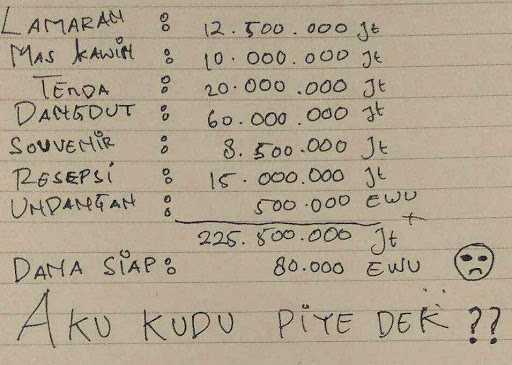 LAMARAN : 12.500.000 Jt
MAS KAWIN : 10.000.000 Jt
TENDA : 20.000.000 Jt
DANGDUT : 60.000.000 Jt
SOUVENIR : 8.500.000 Jt
RESEPSI : 15.000.000 Jt
UNDANGAN : 500.000 EWU
+
225.500.000 Jt
DANA SIAP : 80.000 EWU
AKU KUDU PIYE DEK ??